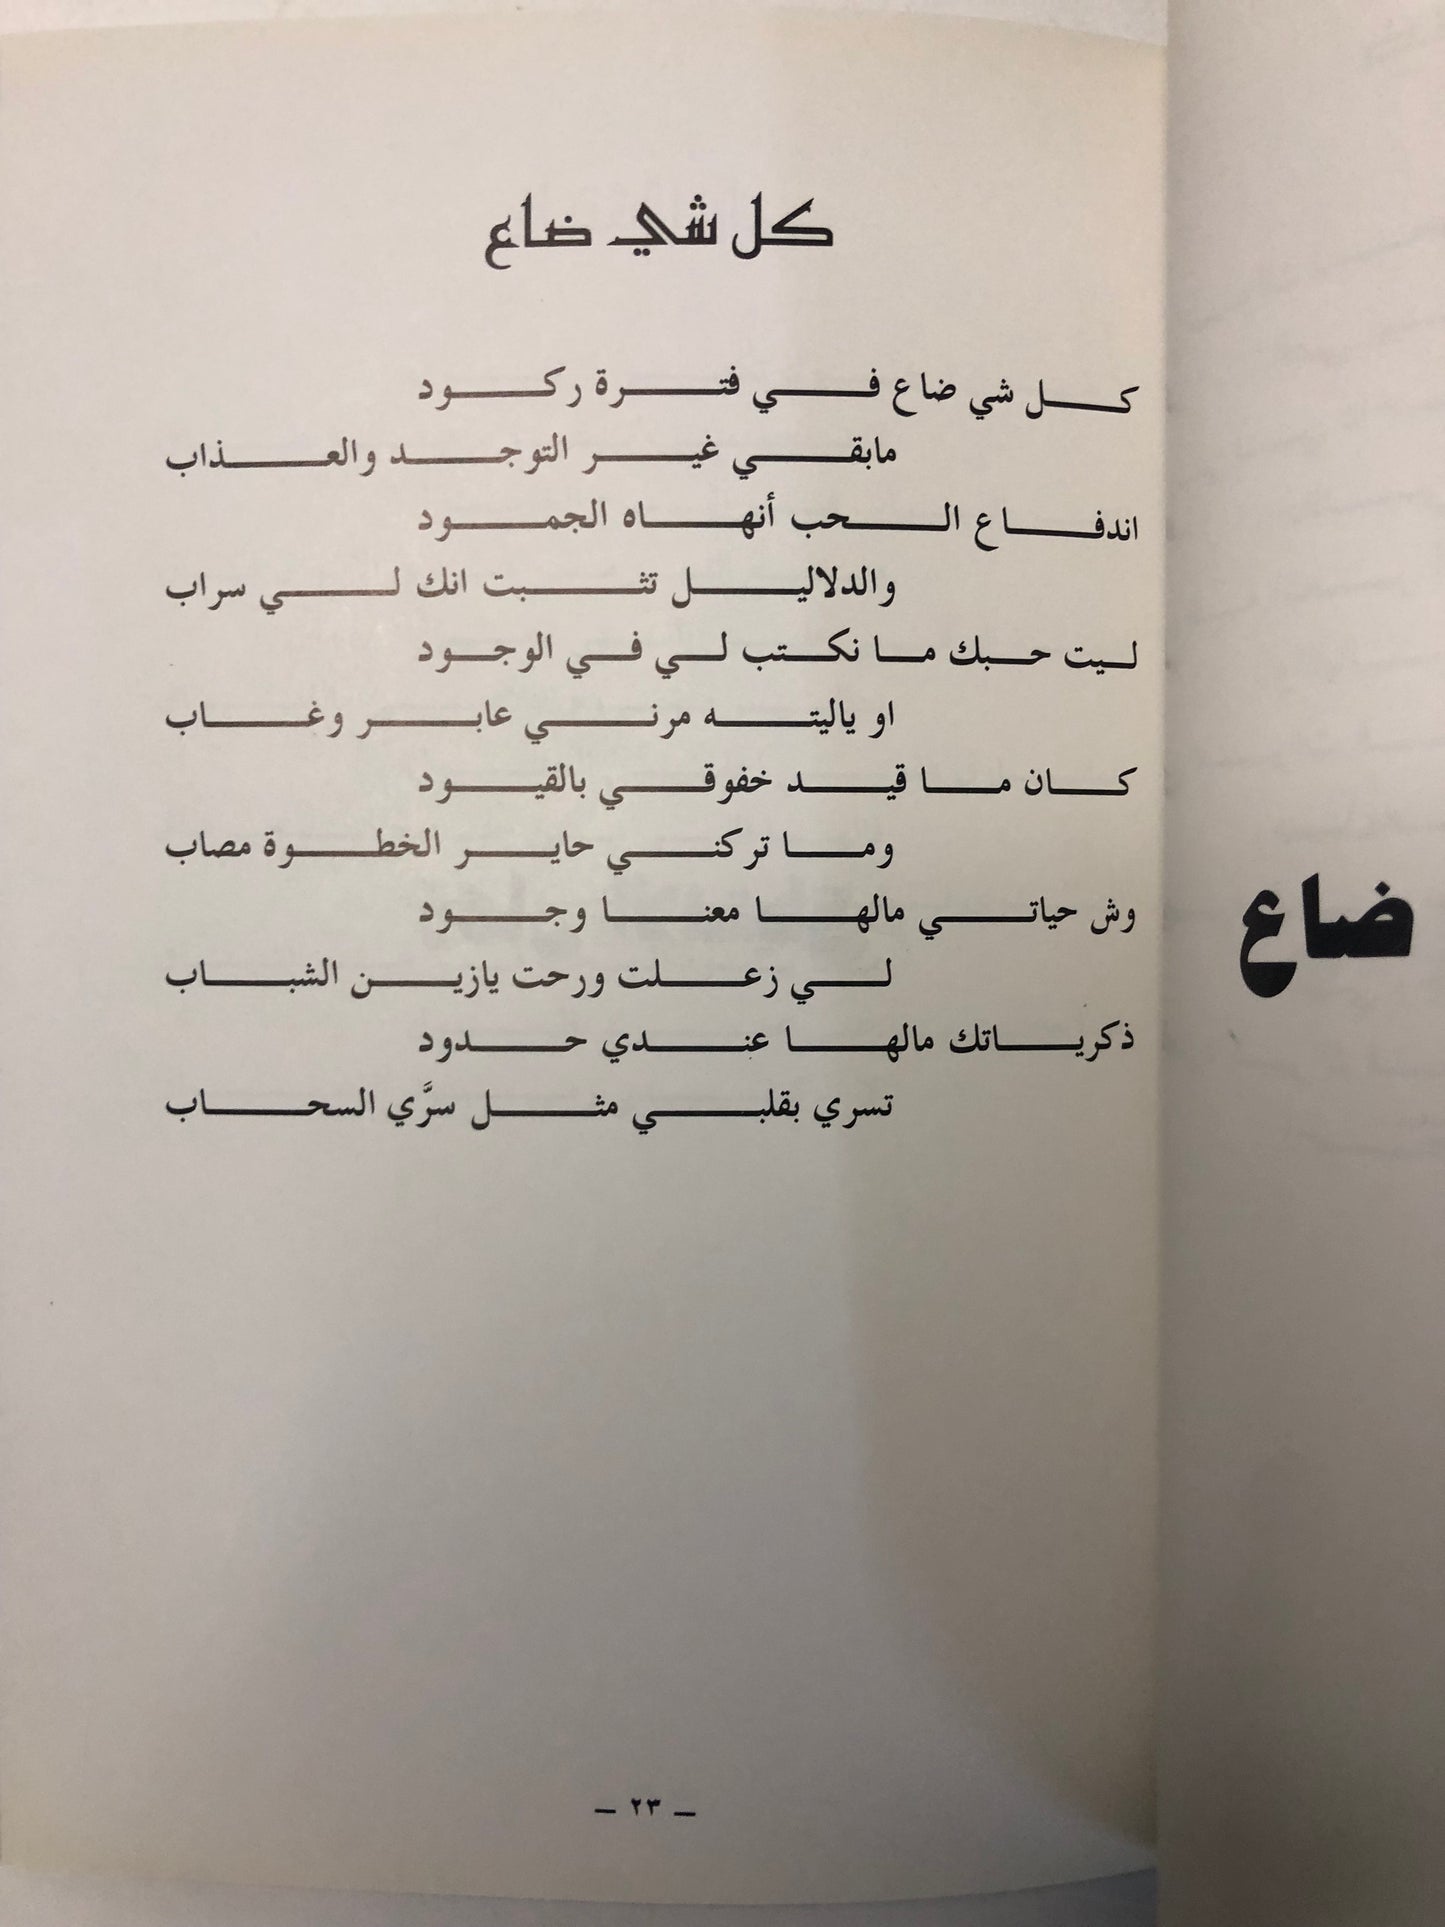 كل شي ضاع
كل شي ضاع في فترة ركود
مابقي غير التوجد والعذاب
اندفاع الحب أنهاه الجمود
والدلاليل تثبت انك لي سراب
ليت حبك ما نكتب لي في الوجود
او ياليته مرني عابر وغاب
كان ما قيد خفوقي بالقيود
وما تركني حاير الخطوة مصاب
وش حياتي مالها معنا وجود
لي زعلت ورحت يازين الشباب
ذكرياتك مالها عندي حدود
تسري بقلبي مثل سرَّي السحاب
— ٢٣ —
ضاع